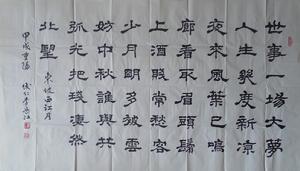 世事一場大夢
人生幾度新涼
夜來風葉已鳴
廊看取眉頭鬢
上酒賤常愁客
少月明多被雲
妨中秋誰與共
孤光把琖淒然
北望 東坡西江月
重陽